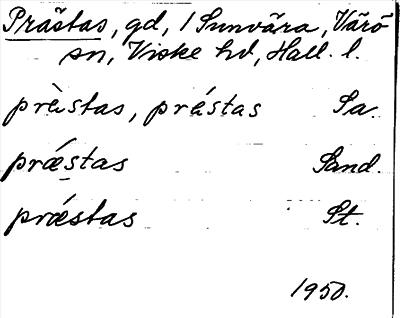 Präštas, gd, 1 Sunvära, Värö
sn, Viske hd, Hall. l.
prằstas, prástas Sa.
prǽstas Sand.
prǽstas St.
1950.